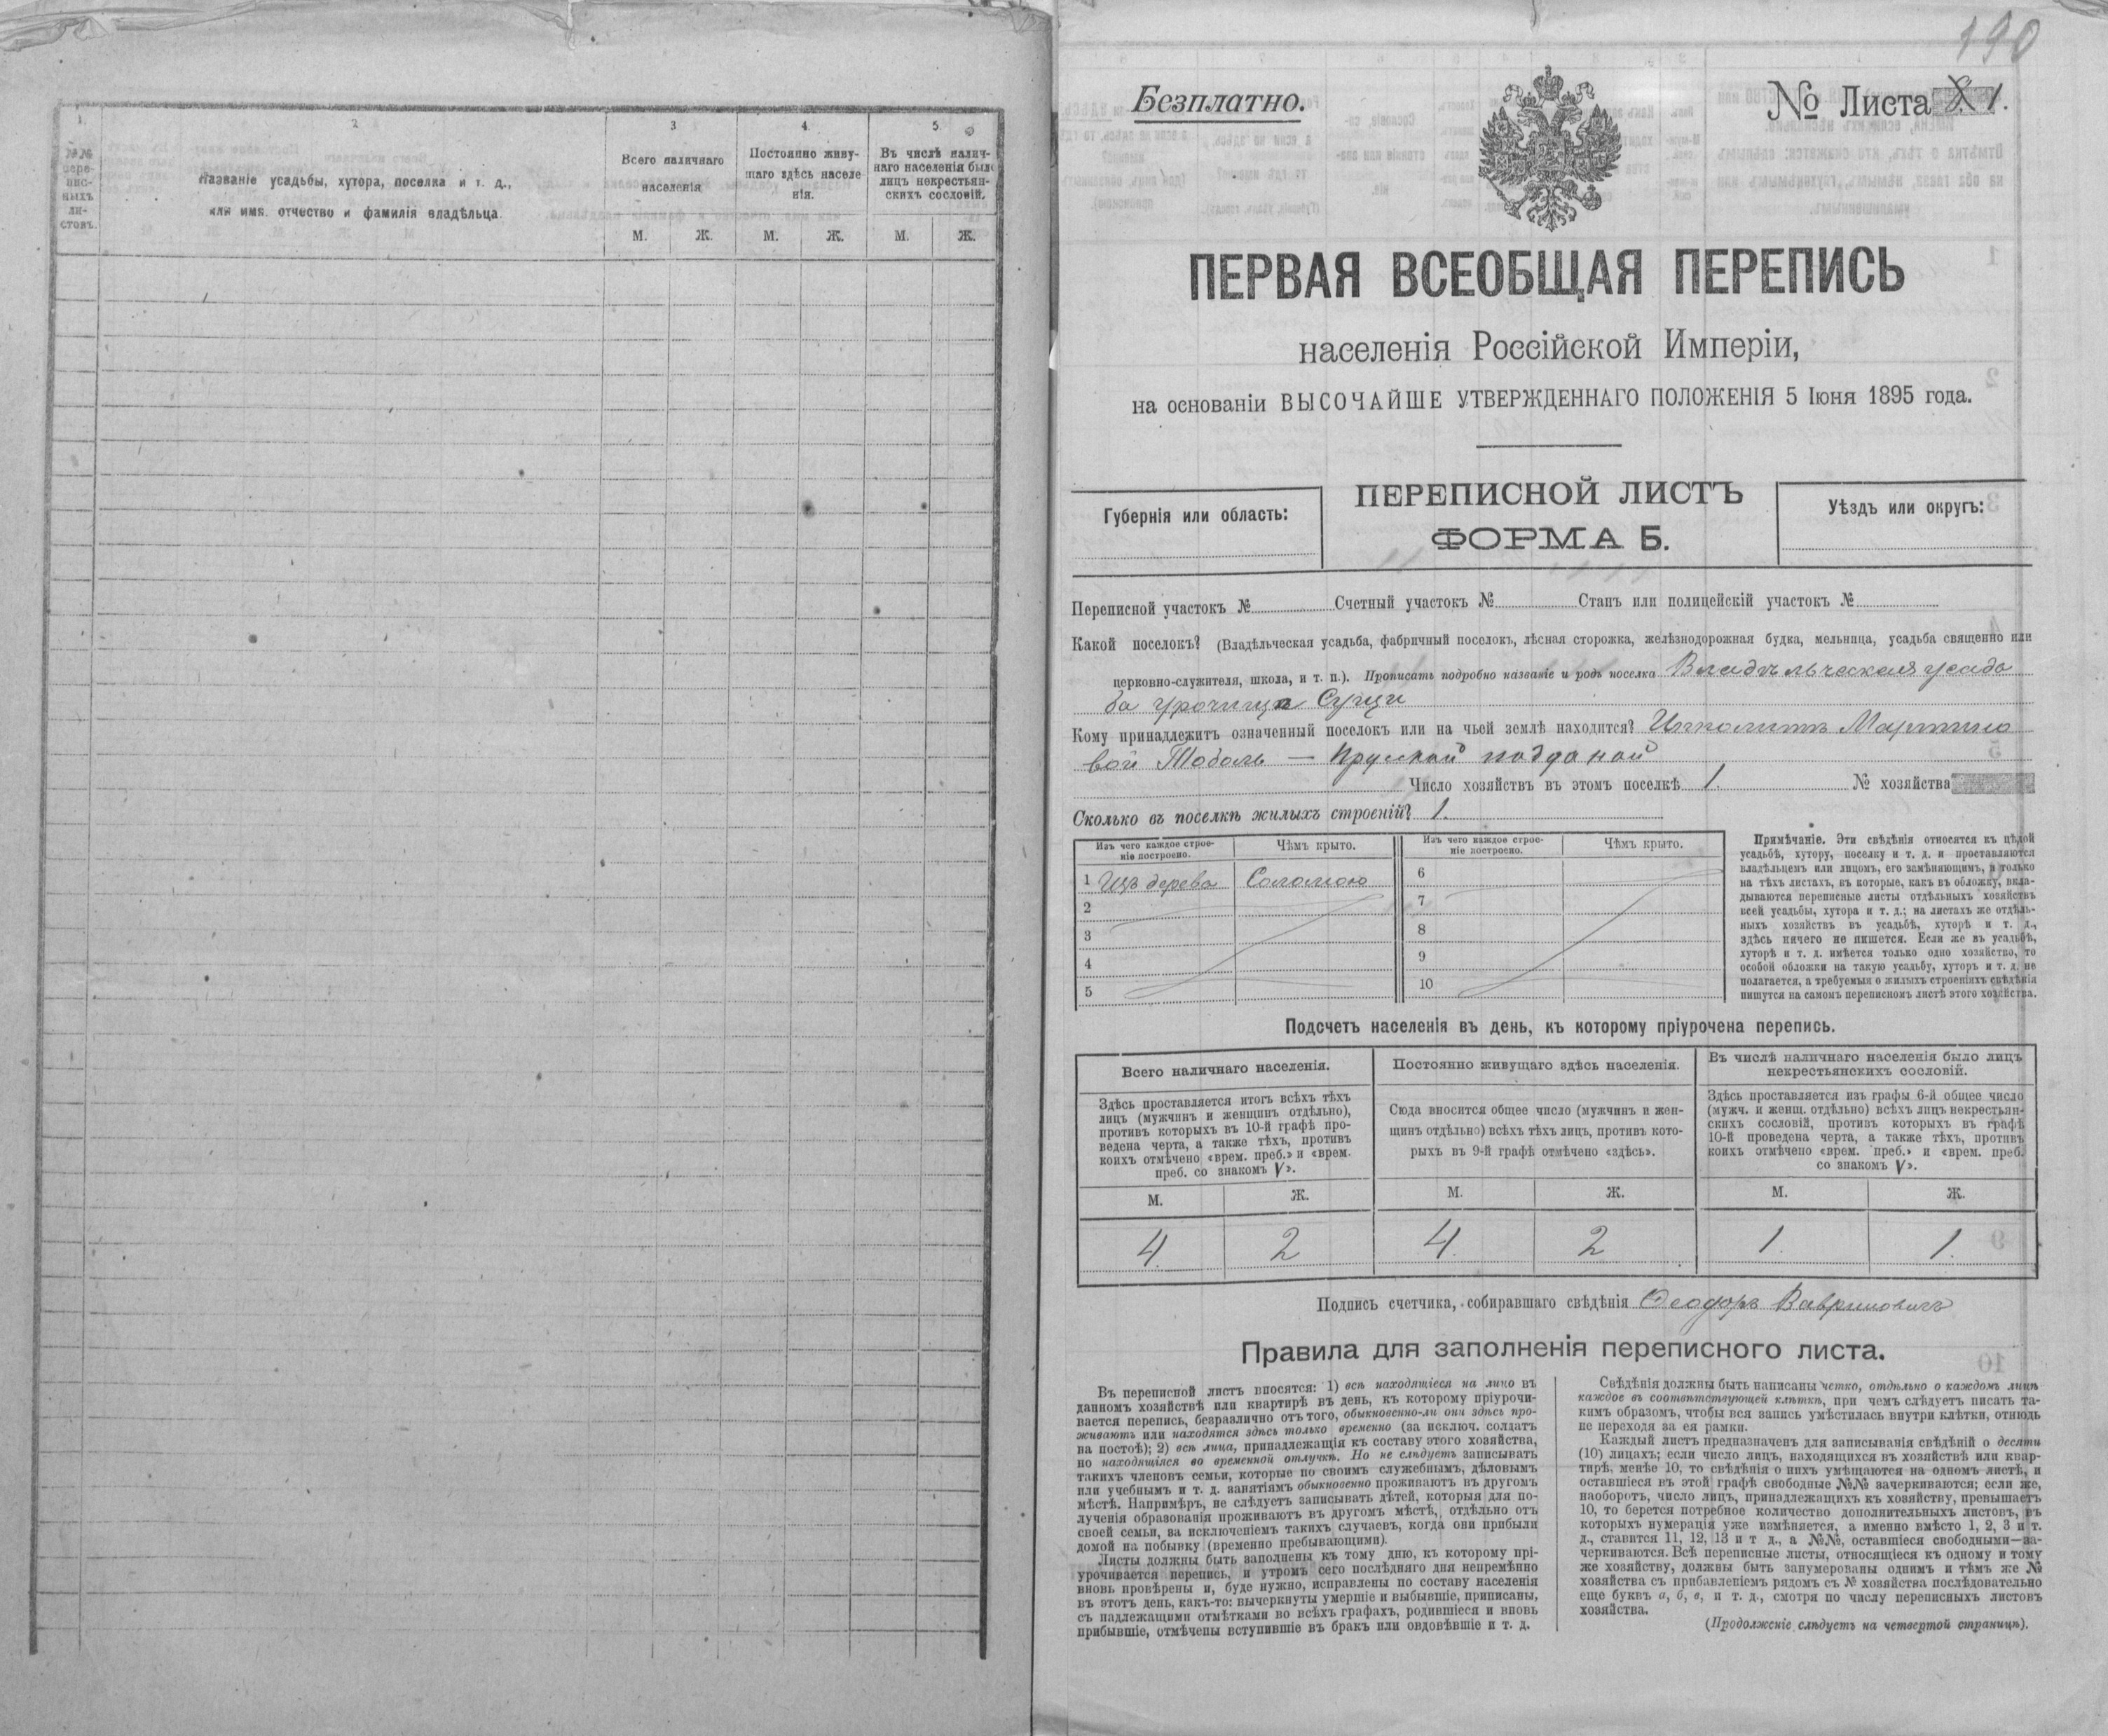 1
2
3
4
5
№№ пере-
пис-
ныхъ
ли-
стовъ.
Названіе усадьбы, хутора, поселка и т. д.,
или имя, отчество и фамилія владѣльца.
Всего наличнаго
населенія
Постоянно живу-
щаго здѣсь населе
нія.
Въ числѣ налич-
наго населенія было
лицъ некрестьян-
скихъ сословій.
М. Ж. М. Ж. М. Ж.
190
Безплатно.
№ Листа 1.
ПЕРВАЯ ВСЕОБЩАЯ ПЕРЕПИСЬ
населенія Россійской Имперіи,
на основаніи ВЫСОЧАЙШЕ УТВЕРЖДЕННАГО ПОЛОЖЕНІЯ 5 Іюня 1895 года.
Губернія или область:
ПЕРЕПИСНОЙ ЛИСТЪ
ФОРМА Б.
Уѣздъ или округъ:
Переписной участокъ № Счетный участокъ № Станъ или полицейскій участокъ №
Какой поселокъ? (Владѣльческая усадьба, фабричный поселокъ, лѣсная сторожка, желѣзнодорожная будка, мельница, усадьба священно или
церковно-служителя, школа, и т. п.). Прописать подробно названіе и родъ поселка Владѣльческая усадь
ба урочище Сущи
Кому принадлежитъ означенный поселокъ или на чьей землѣ находится? Мартино
вой Тоболь — Прусской подданой
Число хозяйствъ въ этомъ поселкѣ 1. № хозяйства
Сколько въ поселкѣ жилыхъ строеній? 1.
Изъ чего каждое строе-
ніе построено.
Чѣмъ крыто.
Изъ чего каждое строе-
ніе построено.
Чѣмъ крыто.
1 Изъ дерева Соломою 6
2 7
3 8
4 9
5 10
Примѣчаніе. Эти свѣдѣнія относятся къ цѣлой
усадьбѣ, хутору, поселку и т. д. и проставляются
владѣльцемъ или лицомъ, его замѣняющимъ, и только
на тѣхъ листахъ, въ которые, какъ въ обложку, вкла-
дываются переписные листы отдѣльныхъ хозяйствъ
всей усадьбы, хутора и т. д.; на листахъ же отдѣль-
ныхъ хозяйствъ въ усадьбѣ, хуторѣ и т. д.,
здѣсь ничего не пишется. Если же въ усадьбѣ,
хуторѣ и т. д. имѣется только одно хозяйство, то
особой обложки на такую усадьбу, хуторъ и т. д. не
полагается, а требуемыя о жилыхъ строеніяхъ свѣдѣнія
пишутся на самомъ переписномъ листѣ этого хозяйства.
Подсчетъ населенія въ день, къ которому пріурочена перепись.
Всего наличнаго населенія.
Постоянно живущаго здѣсь населенія.
Въ числѣ наличнаго населенія было лицъ
некрестьянскихъ сословій.
Здѣсь проставляется итогъ всѣхъ тѣхъ
лицъ (мужчинъ и женщинъ отдѣльно),
противъ которыхъ въ 10-й графѣ про-
ведена черта, а также тѣхъ, противъ
коихъ отмѣчено «врем. преб.» и «врем.
преб. со знакомъ V».
Сюда вносится общее число (мужчинъ и жен-
щинъ отдѣльно) всѣхъ тѣхъ лицъ, противъ кото-
рыхъ въ 9-й графѣ отмѣчено «здѣсь».
Здѣсь проставляется изъ графы 6-й общее число
(мужч. и женщ. отдѣльно) всѣхъ лицъ некрестьян-
скихъ сословій, противъ которыхъ въ графѣ
10-й проведена черта, а также тѣхъ, противъ
коихъ отмѣчено «врем. преб.» и «врем. преб.
со знакомъ V».
М. Ж. М. Ж. М. Ж.
4. 2 4. 2 1. 1.
Подпись счетчика, собиравшаго свѣдѣнія Ѳеодоръ Вавриновичъ
Правила для заполненія переписного листа.
Въ переписной листъ вносятся: 1) всѣ находящіеся на лицо въ
данномъ хозяйствѣ или квартирѣ въ день, къ которому пріурочи-
вается перепись, безразлично отъ того, обыкновенно-ли они здѣсь про-
живаютъ или находятся здѣсь только временно (за исключ. солдатъ
на постоѣ); 2) всѣ лица, принадлежащія къ составу этого хозяйства,
но находящіяся во временной отлучкѣ. Но не слѣдуетъ записывать
такихъ членовъ семьи, которые по своимъ служебнымъ, дѣловымъ
или учебнымъ и т. д. занятіямъ обыкновенно проживаютъ въ другомъ
мѣстѣ. Напримѣръ, не слѣдуетъ записывать дѣтей, которыя для по-
лученія образованія проживаютъ въ другомъ мѣстѣ, отдѣльно отъ
своей семьи, за исключеніемъ такихъ случаевъ, когда они прибыли
домой на побывку (временно пребывающими).
Листы должны быть заполнены къ тому дню, къ которому прі-
урочивается перепись, и утромъ сего послѣдняго дня непремѣнно
вновь провѣрены и, буде нужно, исправлены по составу населенія
въ этотъ день, какъ-то: вычеркнуты умершіе и выбывшіе, приписаны,
съ надлежащими отмѣтками во всѣхъ графахъ, родившіеся и вновь
прибывшіе, отмѣчены вступившіе въ бракъ или овдовѣвшіе и т. д.
Свѣдѣнія должны быть написаны четко, отдѣльно о каждомъ лицѣ
каждое въ соотвѣтствующей клѣткѣ, при чемъ слѣдуетъ писать та-
кимъ образомъ, чтобы вся запись умѣстилась внутри клѣтки, отнюдь
не переходя за ея рамки.
Каждый листъ предназначенъ для записыванія свѣдѣній о десяти
(10) лицахъ; если число лицъ, находящихся въ хозяйствѣ или квар-
тирѣ, менѣе 10, то свѣдѣнія о нихъ умѣщаются на одномъ листѣ, и
оставшіеся въ этой графѣ свободные №№ зачеркиваются; если же,
наоборотъ, число лицъ, принадлежащихъ къ хозяйству, превышаетъ
10, то берется потребное количество дополнительныхъ листовъ, въ
которыхъ нумерація уже измѣняется, а именно вмѣсто 1, 2, 3 и т.
д., ставится 11, 12, 13 и т д., а №№, оставшіеся свободными—за-
черкиваются. Всѣ переписные листы, относящіеся къ одному и тому
же хозяйству, должны быть занумерованы однимъ и тѣмъ же №
хозяйства съ прибавленіемъ рядомъ съ № хозяйства послѣдовательно
еще буквъ а, б, в, и т. д., смотря по числу переписныхъ листовъ
хозяйства.
(Продолженіе слѣдуетъ на четвертой страницѣ).